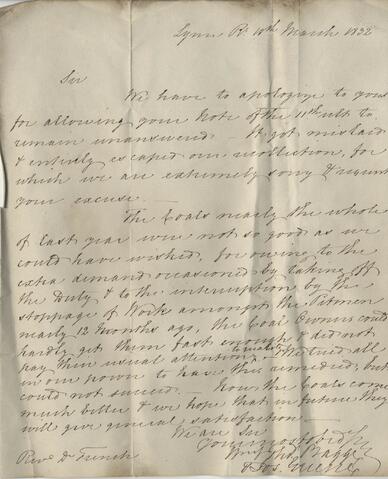 Lynn R. 10th March 1832
Sir
We have to apologize to you
for allowing your Note of the 11th ult to
remain unanswered — It got mislaid
& entirely escaped our recollection, for
which we are extremely sorry & request
your excuse —
The Coals nearly the whole
of last year were not so good as we
could have wished, for owing to the
extra demand occasioned by taking off
the Duty & to the interruption by the
stoppage of Work amongst the Pitmen
nearly 12 Months ago, the Coal Owners could
hardly get them fast enough & did not
pay their usual attention. We tried all
in our power to have this remedied, but
could not succeed — Now the Coals come
much better & we hope that in future they
will give general satisfaction —
We are Sir
Your most obed
Wm & Thos Bagge
& Jos.
Revd Dr French